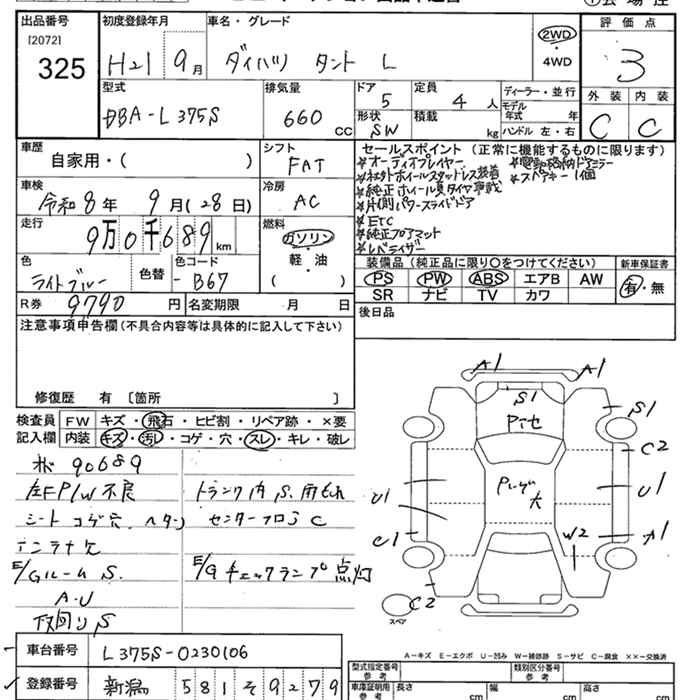 出品番号
[2072]
325
初度登録年月
H21 9月
車名・グレード
ダイハツ タント L
2WD
・
4WD
評価点
3
外装 内装
C C
型式
DBA-L375S
排気量
660 cc
ドア
5
定員
4 人
形状
SW
積載
kg
ディーラー・並行
モデル
年式 年
ハンドル 左・右
車歴
自家用・( )
シフト
FAT
車検
令和8年 9月(28日)
冷房
AC
走行
9万0千689km
燃料
ガソリン
軽・油
( )
色
ライトブルー
色替
色コード
-B67
R券 9790 円
名変期限 月 日
セールスポイント(正常に機能するものに限ります)
*オーディオプレイヤー *電動格納ドアミラー
*社外ホイールスタッドレス装着 *スペアキー1個
*純正ホイール夏タイヤ車載
*片側パワースライドドア
*ETC
*純正フロアマット
*レベライザー
装備品(純正品に限り○をつけてください)
PS PW ABS エアB AW
SR ナビ TV カワ
新車保証書
有・無
後日品
注意事項申告欄(不具合内容等は具体的に記入して下さい)
修復歴 有 〔箇所 〕
検査員
記入欄
FW キズ・飛石・ヒビ割・リペア跡・×要
内装 キズ・汚レ・コゲ・穴・スレ・キレ・破レ
90689
左FP/W不良
シートコゲ穴
アンテナ欠
E/Gルーム S.
A.U
下回りS
トランク内 S.
センターフロアC
E/Gチェックランプ点灯
A1 A1
S1
S1
C2
U1 U1
C1 A1
W2
C2
スペア
A-キズ E-エクボ U-凹み W-補修跡 S-サビ C-腐食 ××-交換済
車台番号
L375S-0230106
登録番号
新潟 581 そ 9279
型式指定番号
参考
類別区分番号
参考
車庫証明用
参考
長さ cm
幅 cm
高さ cm